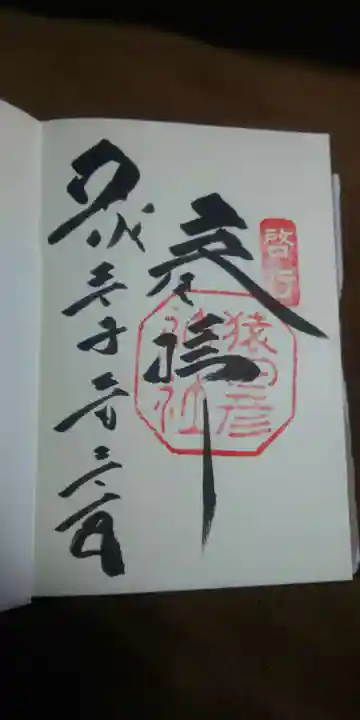 啓行
奉拝
猿田彦
神社
平成三十年三月三十一日